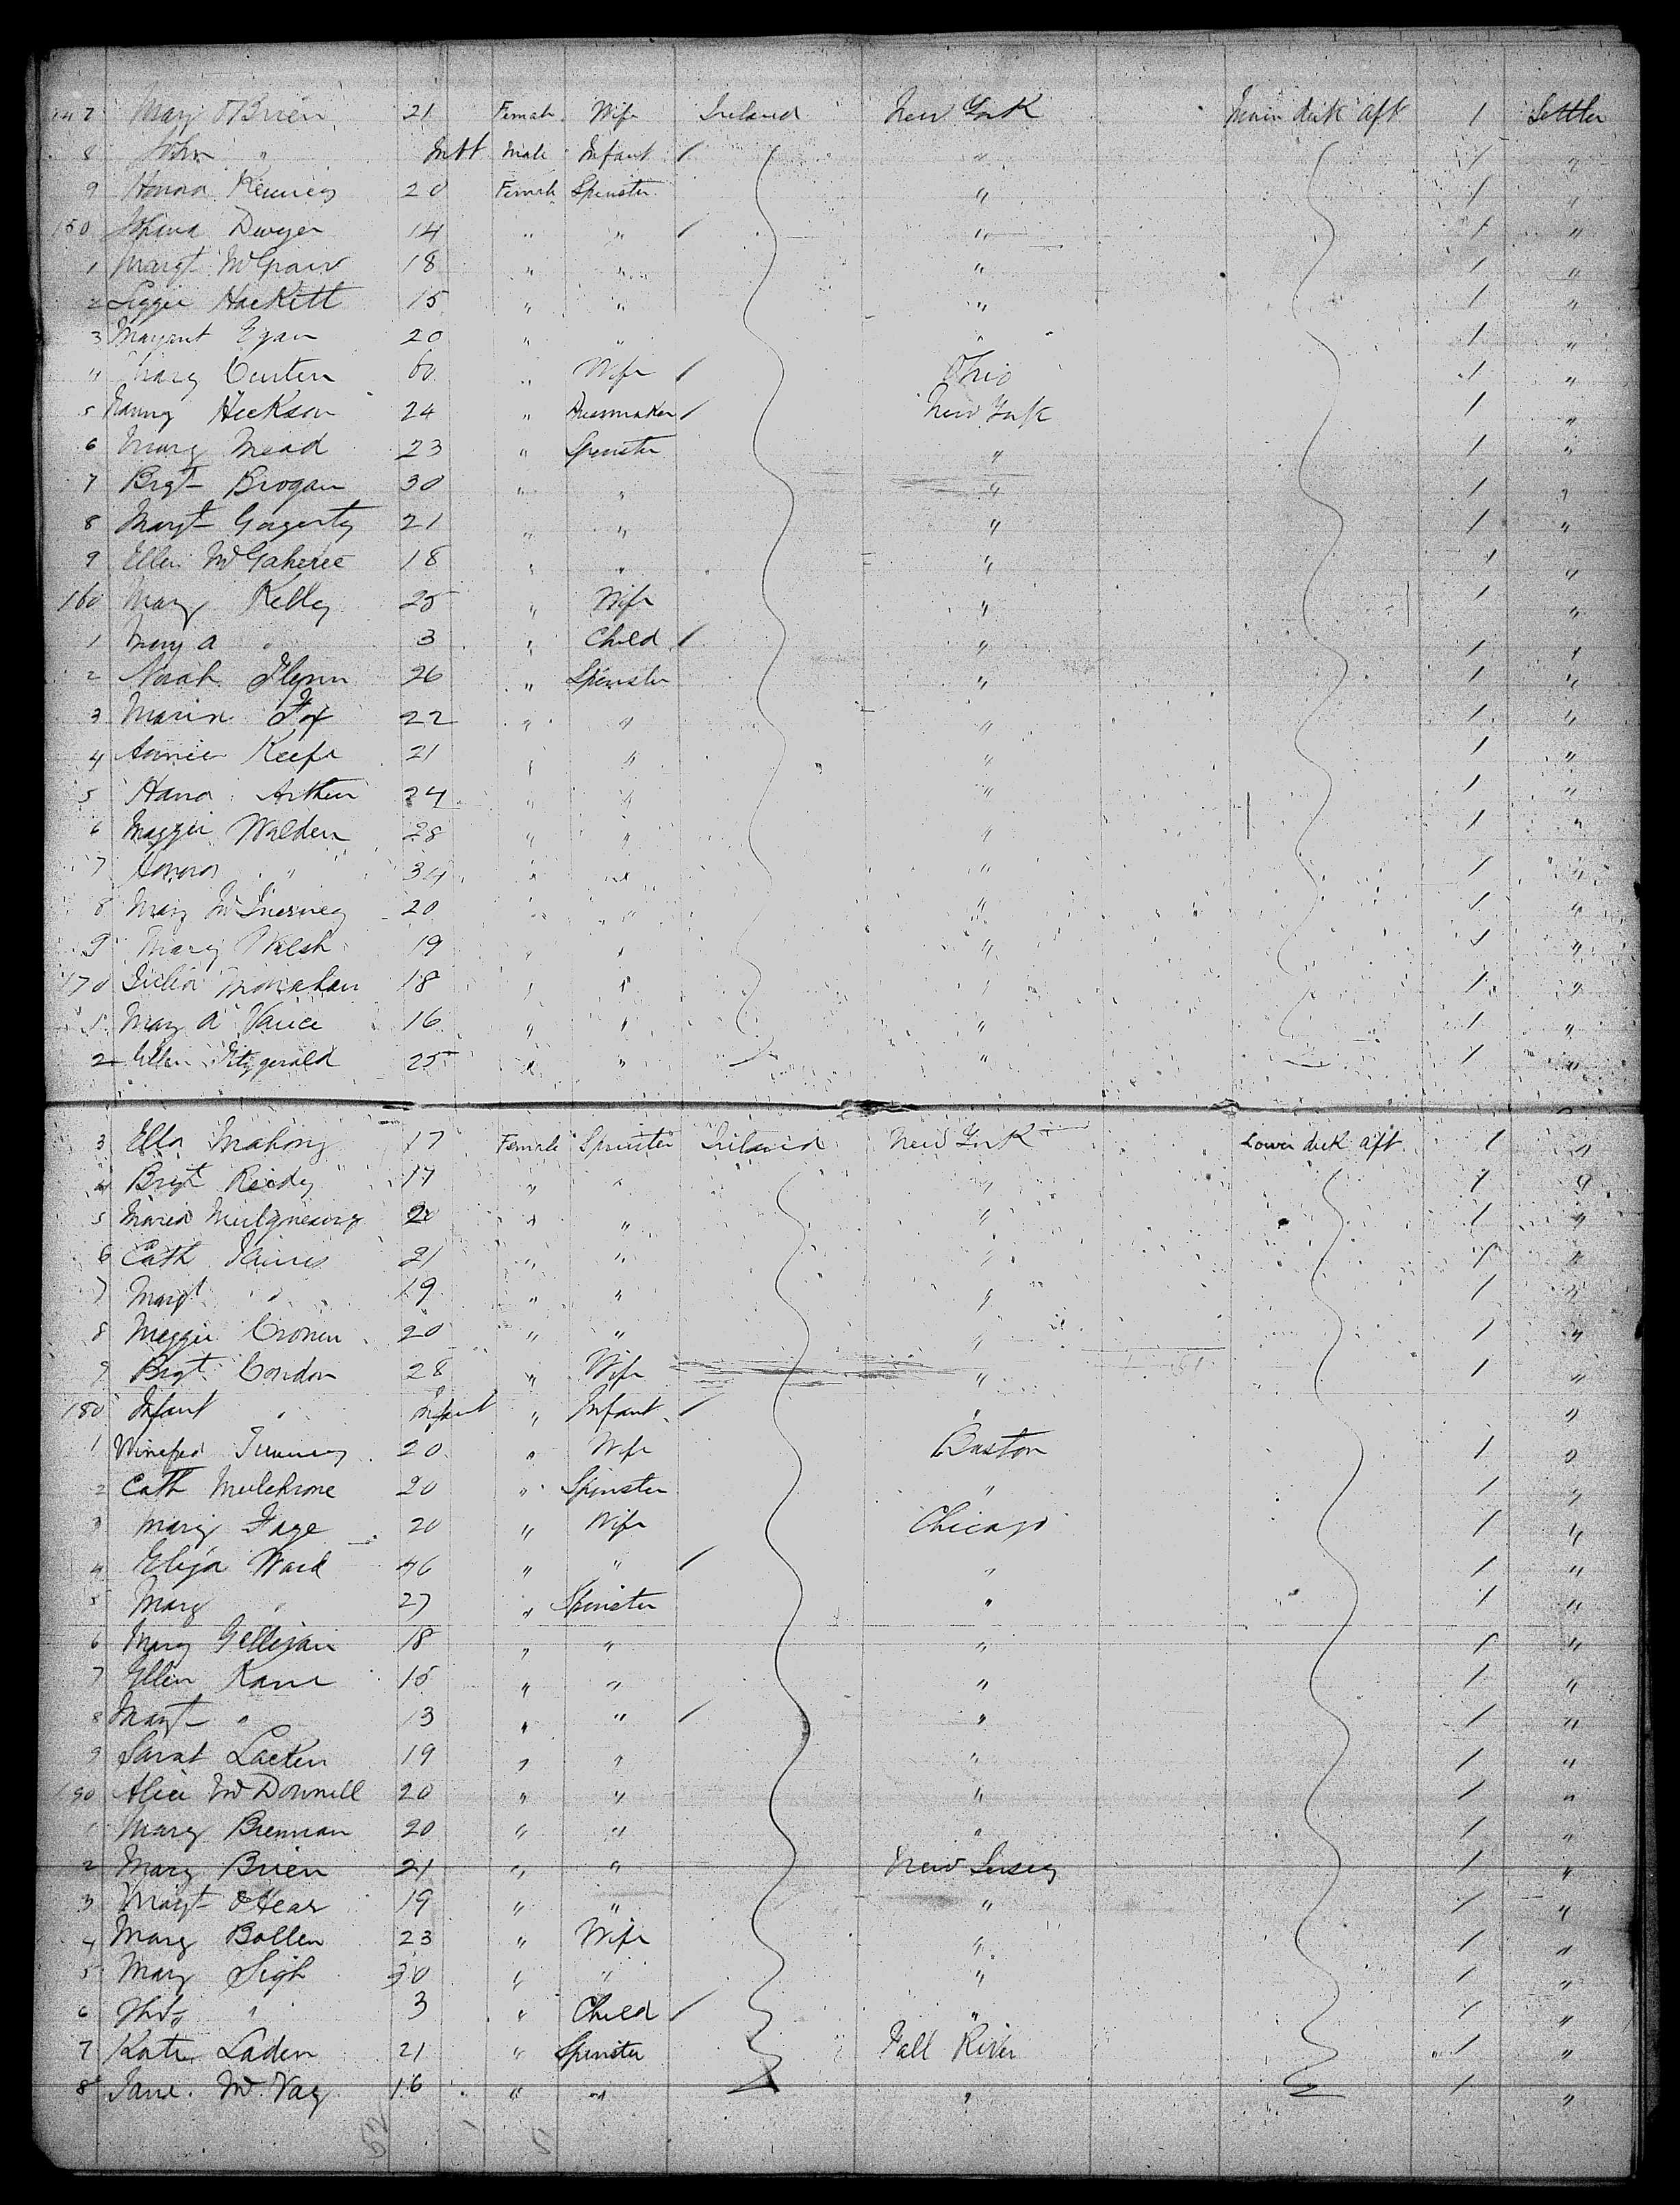 147 Mary O'Brien 21 Female Wife Ireland New York Main deck aft 1 Settler
8 John " Inft Male Infant / " 1 "
9 Honora Kenney 20 Female Spinster " 1 "
150 Johana Dwyer 14 " " / " 1 "
1 Margt McGraw 18 " " " 1 "
2 Lizzie Hackett 15 " " " 1 "
3 Margaret Egan 20 " " " 1 "
4 Mary Curten 60 " Wife / Ohio 1 "
5 Nanny Hickson 24 " Dressmaker / New York 1 "
6 Mary Mead 23 " Spinster " 1 "
7 Brgt Brogan 30 " " " 1 "
8 Margt Gogerty 21 " " " 1 "
9 Ellen McGaheree 18 " " " 1 "
160 Mary Kelly 25 " Wife " 1 "
1 Mary A " 3 " Child / " 1 "
2 Norah Flynn 26 " Spinster " 1 "
3 Maria Fox 22 " " " 1 "
4 Annie Keefe 21 " " " 1 "
5 Hana Arthur 24 " " " 1 "
6 Maggie Walden 28 " " " 1 "
7 Honora " 34 " " " 1 "
8 Mary McInerney 20 " " " 1 "
9 Mary Walsh 19 " " " 1 "
170 Julia Monahan 18 " " " 1 "
1 Mary A Vance 16 " " " 1 "
2 Ellen Fitzgerald 25 " " " 1 "
3 Ella Mahony 17 Female Spinster Ireland New York Lower deck aft 1 "
4 Brgt Reidy 17 " " " 1 "
5 Maria 20 " " " 1 "
6 Cath 21 " " " 1 "
7 Margt " 19 " " " 1 "
8 Maggie Cronin 20 " " " 1 "
9 Brgt Condon 28 " Wife " 1 "
180 Infant " Infant " Infant / " "
1 Winefred 20 " Wife Boston 1 "
2 Cath Mulchrone 20 " Spinster " 1 "
3 Mary Faye 20 " Wife Chicago 1 "
4 Eliza Ward 46 " " / " 1 "
5 Mary " 27 " Spinster " 1 "
6 Mary Gilligan 18 " " " 1 "
7 Ellen Kane 15 " " " 1 "
8 Margt " 13 " " / " 1 "
9 Sarah Lacken 19 " " " 1 "
190 Alice McDonnell 20 " " " 1 "
1 Mary Brennan 20 " " " 1 "
2 Mary Brien 21 " " New Jersey 1 "
3 Margt O'Hear 19 " " " 1 "
4 Mary Bollen 23 " Wife " 1 "
5 Mary Sigh 30 " " " 1 "
6 " 3 " Child / " 1 "
7 Kate Laden 21 " Spinster Fall River 1 "
8 Jane McVay 16 " " " 1 "